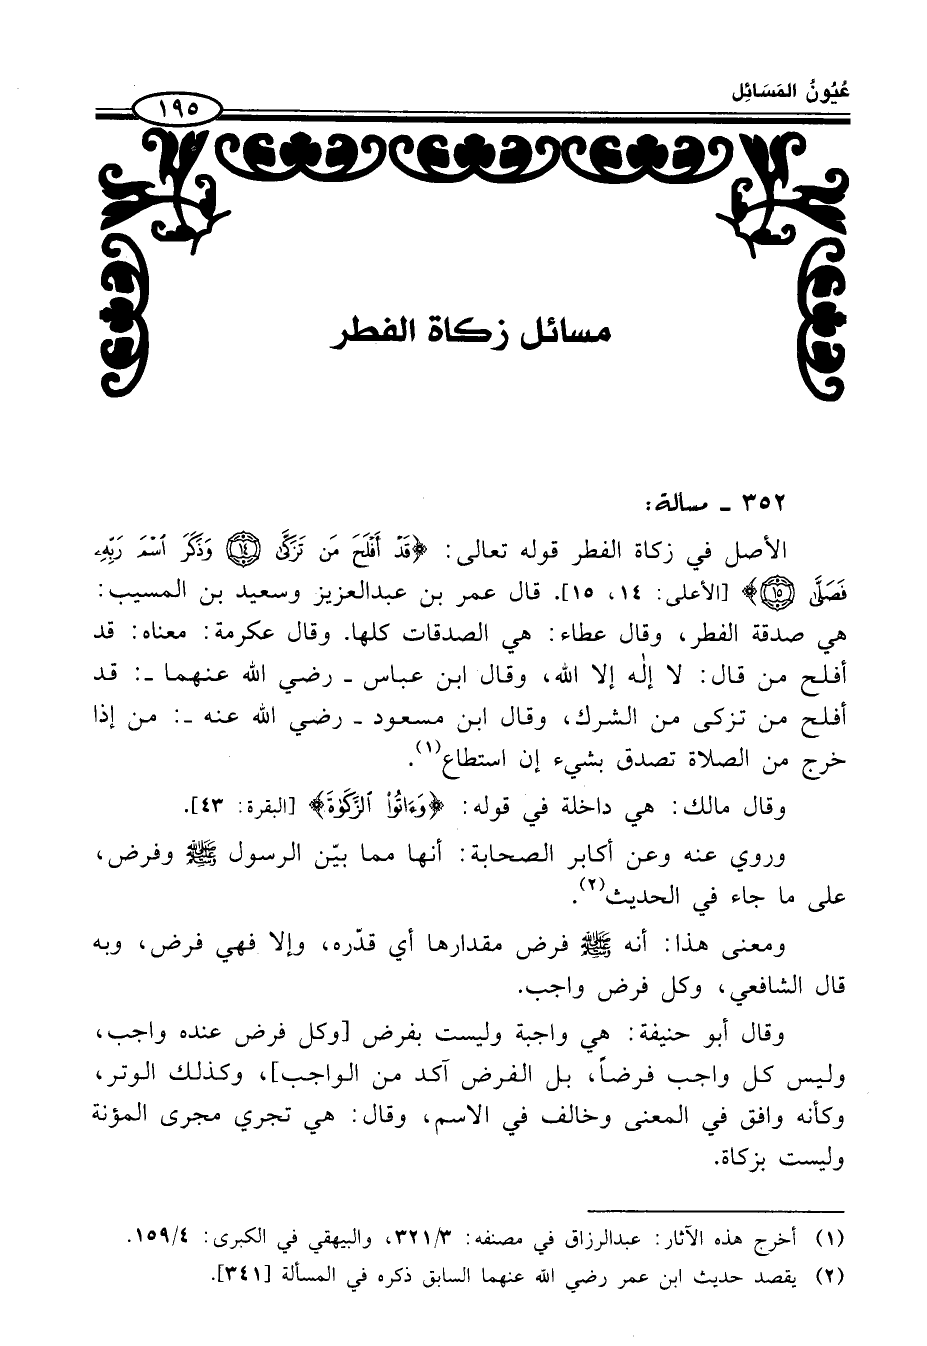 عُيُونُ المَسَائِل
١٩٥
مسائل زكاة الفطر
٣٥٢ ـ مسالة:
الأصل في زكاة الفطر قوله تعالى: ﴿قَدْ أَفْلَحَ مَن تَزَكَّىٰ ۝١٤ وَذَكَرَ ٱسْمَ رَبِّهِۦ
فَصَلَّىٰ ۝١٥﴾ [الأعلى: ١٤، ١٥]. قال عمر بن عبدالعزيز وسعيد بن المسيب:
هي صدقة الفطر، وقال عطاء: هي الصدقات كلها. وقال عكرمة: معناه: قد
أفلح من قال: لا إلٰه إلا الله، وقال ابن عباس ـ رضي الله عنهما ـ: قد
أفلح من تزكى من الشرك، وقال ابن مسعود ـ رضي الله عنه ـ: من إذا
خرج من الصلاة تصدق بشيء إن استطاع(١).
وقال مالك: هي داخلة في قوله: ﴿وَءَاتُوا۟ ٱلزَّكَوٰةَ﴾ [البقرة: ٤٣].
وروي عنه وعن أكابر الصحابة: أنها مما بيّن الرسول ﷺ وفرض،
على ما جاء في الحديث(٢).
ومعنى هذا: أنه ﷺ فرض مقدارها أي قدّره، وإلا فهي فرض، وبه
قال الشافعي، وكل فرض واجب.
وقال أبو حنيفة: هي واجبة وليست بفرض [وكل فرض عنده واجب،
وليس كل واجب فرضاً، بل الفرض آكد من الواجب]، وكذلك الوتر،
وكأنه وافق في المعنى وخالف في الاسم، وقال: هي تجري مجرى المؤنة
وليست بزكاة.
(١) أخرج هذه الآثار: عبدالرزاق في مصنفه: ٣٢١/٣، والبيهقي في الكبرى: ١٥٩/٤.
(٢) يقصد حديث ابن عمر رضي الله عنهما السابق ذكره في المسألة [٣٤١].